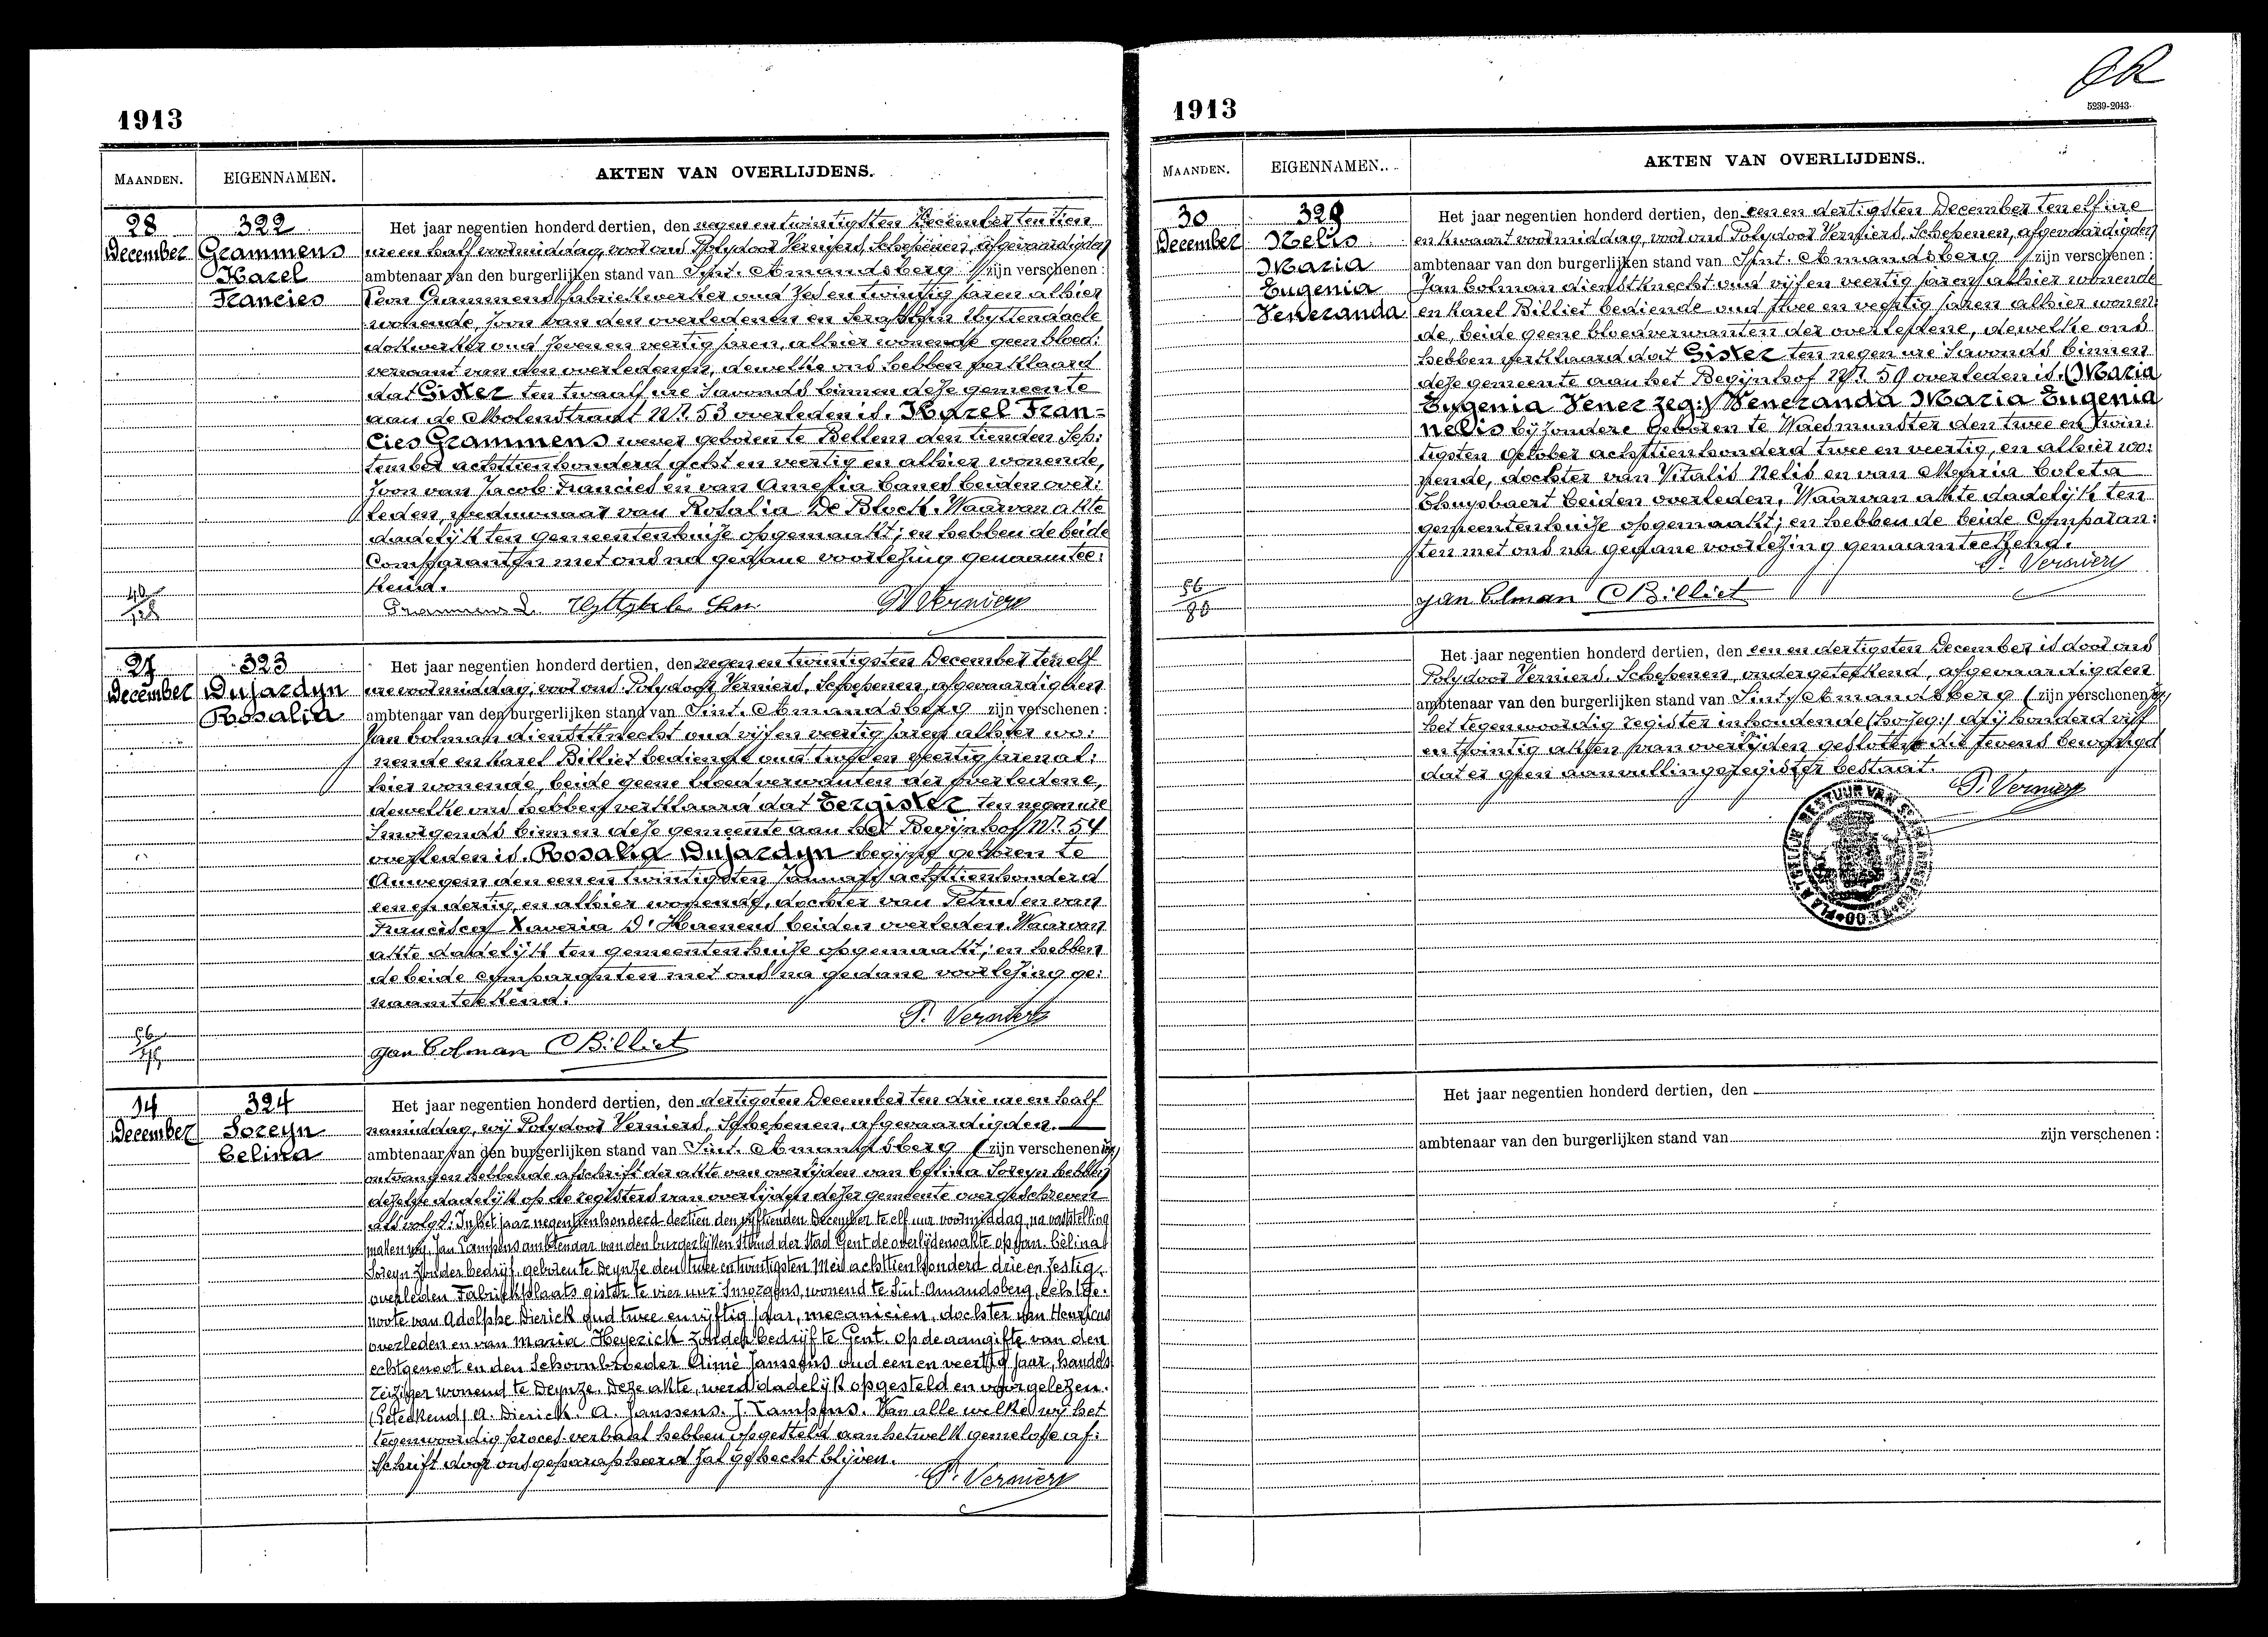 1913
MAANDEN.
EIGENNAMEN.
AKTEN VAN OVERLIJDENS.
28
December
322
Grammens
Karel
Francies
Het jaar negentien honderd dertien, den negen en twintigsten December ten tien
ure en half voormiddag, voor ons Polydoor Verniers, Schepenen, afgevaardigden
ambtenaar van den burgerlijken stand van Sint. Amandsberg zijn verschenen :
Leon Grammens fabriekwerker oud zes en twintig jaren alhier
wonende, zoon van den overledenen en Uyttendaele
dokwerker oud zeven en veertig jaren, alhier wonende geen bloed:
verwant van den overledenen, dewelke ons hebben verklaard
dat Gister ten twaalf ure Savonds binnen deze gemeente
aan de Molenstraat Nr. 53 overleden is. Karel Fran=
cies Grammens wever geboren te Bellem den tienden Sep:
tember achttienhonderd acht en veertig en alhier wonende,
zoon van Jacob Francies en van Amelia beiden over:
leden, weduwnaar van Rosalia De Block. Waarvan akte
dadelijk ten gemeentenhuize opgemaakt; en hebben de beide
Comparanten met ons na gedane voorlezing genaamtee:
kend.
Grammens L. P. Verniers
27
December
323
Dujardyn
Rosalia
Het jaar negentien honderd dertien, den negen en twintigsten December ten elf
ure voormiddag, voor ons Polydoor Verniers, Schepenen, afgevaardigden
ambtenaar van den burgerlijken stand van Sint. Amandsberg zijn verschenen :
Jan Colman dienstknecht oud vijf en veertig jaren alhier wo:
nende en Karel Billiet bediende oud twee en veertig jaren al:
hier wonende, beide geene bloedverwanten der overledene,
dewelke ons hebben verklaard dat Eergister ten negen ure
Smorgends binnen deze gemeente aan het Begijnhof Nr. 54
overleden is. Rosalia Dujardyn begijn geboren te
Auwegem den een en twintigsten Januari achttienhonderd
een en dertig, en alhier wonende, dochter van Petrus en van
Francisca Xaveria D'Haenens beiden overleden. Waarvan
akte dadelijk ten gemeentenhuize opgemaakt; en hebben
de beide comparanten met ons na gedane voorlezing ge:
naamteekend.
P. Verniers
Jan Colman C Billiet
14
December
324
Soreyn
Celina
Het jaar negentien honderd dertien, den dertigsten December ten drie ure en half
namiddag, wij Polydoor Verniers, Schepenen, afgevaardigden
ambtenaar van den burgerlijken stand van Sint. Amandsberg ( zijn verschenen
ontvangen hebbende afschrift der akte van overlijden van Celina Soreyn hebben
dezelve dadelijk op de registers van overlijden dezer gemeente overgeschreven
als volgt: In het jaar negentienhonderd dertien den vijftienden December te elf uur voormiddag, na vaststelling
maken wij, Jan Lampens ambtenaar van den burgerlijken Stand der Stad Gent de overlijdensakte op van. Celina
Soreyn zonder bedrijf, geboren te Deynze den twee en twintigsten Mei achttienhonderd drie en zestig,
overleden Fabriekplaats gister te vier uur Smorgens, wonend te Sint-Amandsberg, echtge-
noote van Adolphe Dierick oud twee en vijftig jaar, mecanicien, dochter van Henricus
overleden en van Maria Heyerick zonder bedrijf te Gent. Op de aangifte van den
echtgenoot en den Schoonbroeder Aimé Janssens oud een en veertig jaar, handels
reiziger wonend te Deynze. Deze akte, werd dadelijk opgesteld en voorgelezen.
(Geteekend) A. Dierick. A. Janssens. J. Lampens. Van alle welke wij het
tegenwoordig proces-verbaal hebben opgesteld aan hetwelk gemelde af:
schrift door ons geparapheerd zal gehecht blijven.
P. Verniers
1913
5239-2043
MAANDEN.
EIGENNAMEN.
AKTEN VAN OVERLIJDENS.
30
December
325
Nelis
Maria
Eugenia
Veneranda
Het jaar negentien honderd dertien, den een en dertigsten December ten elf ure
en kwaart voormiddag, voor ons Polydoor Verniers, Schepenen, afgevaardigden
ambtenaar van den burgerlijken stand van Sint. Amandsberg zijn verschenen :
Jan Colman dienstknecht oud vijf en veertig jaren alhier wonende
en Karel Billiet bediende oud twee en veertig jaren alhier wonen:
de, beide geene bloedverwanten der overledene, dewelke ons
hebben verklaard dat Gister ten negen ure Savonds binnen
deze gemeente aan het Begijnhof Nr. 59 overleden is. (Maria
Eugenia Vener zeg:) Veneranda Maria Eugenia
Nelis bijzondere geboren te Waesmunster den twee en twin:
tigsten October achttienhonderd twee en veertig, en alhier wo:
nende, dochter van Vitalis Nelis en van Maria Coleta
Thuysbaert beiden overleden. Waarvan akte dadelijk ten
gemeentenhuize opgemaakt; en hebben de beide Comparan:
ten met ons na gedane voorlezing genaamteekend.
P. Verniers
Jan Colman C Billiet
Het jaar negentien honderd dertien, den een en dertigsten December is door ons
Polydoor Verniers, Schepenen, ondergeteekend, afgevaardigden
ambtenaar van den burgerlijken stand van Sint. Amandsberg ( zijn verschenen
het tegenwoordig register inhoudende (ho zeg:) drij honderd vijf
en twintig akten van overlijden gesloten die tevens bevestigd
dat er geen aanvullingsregister bestaat.
P. Verniers
Het jaar negentien honderd dertien, den
ambtenaar van den burgerlijken stand van zijn verschenen :